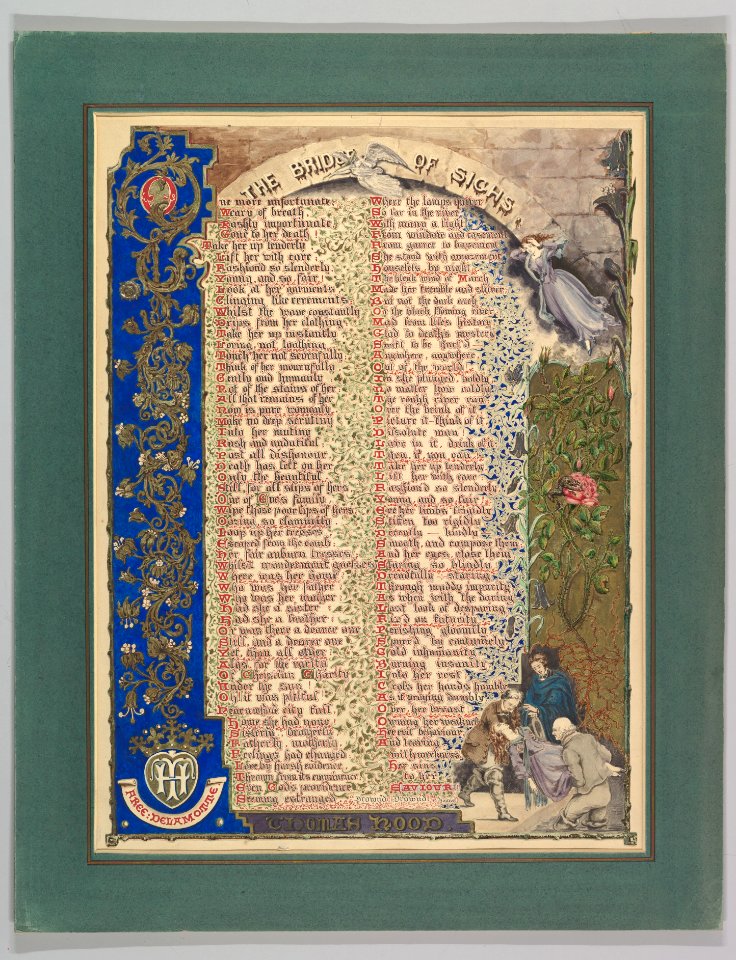 THE BRIDGE OF SIGHS.
One more unfortunate,
Weary of breath,
Rashly importunate,
Gone to her death
Take her up tenderly
Lift her with care
Fashioned so slenderly
Young, and so fair
Look at her garments
Clinging like cerements
Whilst the wave constantly
Drips from her clothing
Take her up instantly
Loving, not loathing
Touch her not scornfully
Think of her mournfully
Gently and humanly
Not of the stains of her
All that remains of her
Now is pure womanly
Make no deep scrutiny
Into her mutiny
Rash and undutiful
Past all dishonour
Death has left on her
Only the beautiful
Still, for all slips of hers
One of Eve's family
Wipe those poor lips of hers
Oozing so clammily
Loop up her tresses
Escaped from the comb
Her fair auburn tresses
Whilst wonderment guesses
Where was her home
Who was her father
Who was her mother
Had she a sister
Had she a brother
Or was there a dearer one
Still, and a nearer one
Yet, than all other
Alas, for the rarity
Of Christian Charity
Under the sun
Oh, it was pitiful
Near a whole city full
Home she had none
Sisterly, brotherly
Fatherly, motherly
Feelings had changed
Love by harsh evidence
Thrown from its eminence
Even Gods providence
Seeming estranged
Where the lamps quiver
So far in the river
With many a light
From window and casement
From garret to basement
She stood with amazement
Houseless by night
The bleak wind of March
Made her tremble and shiver
But not the dark arch
Or the black flowing river
Mad from life's history
Glad to death's mystery
Swift to be hurl'd
Anywhere, anywhere
Out of the world
In she plunged boldly
No matter how coldly
The rough river ran
Over the brink of it
Picture it – think of it
Dissolute man
Lave in it, drink of it
Then, if you can
Take her up tenderly
Lift her with care
Fashion'd so slenderly
Young, and so fair
Ere her limbs frigidly
Stiffen too rigidly
Decently – kindly
Smooth, and compose them
And her eyes, close them
Staring so blindly
Dreadfully staring
Through muddy impurity
As when with the daring
Last look of despairing
Fixed on futurity
Perishing gloomily
Spurred by contumely
Cold inhumanity
Burning insanity
Into her rest
Cross her hands humbly
As if praying dumbly
Over her breast
Owning her weakness
Her evil behaviour
And leaving
with meekness
Her sins
to her
SAVIOUR
THOMAS HOOD.
FREE·DELAMOTTE